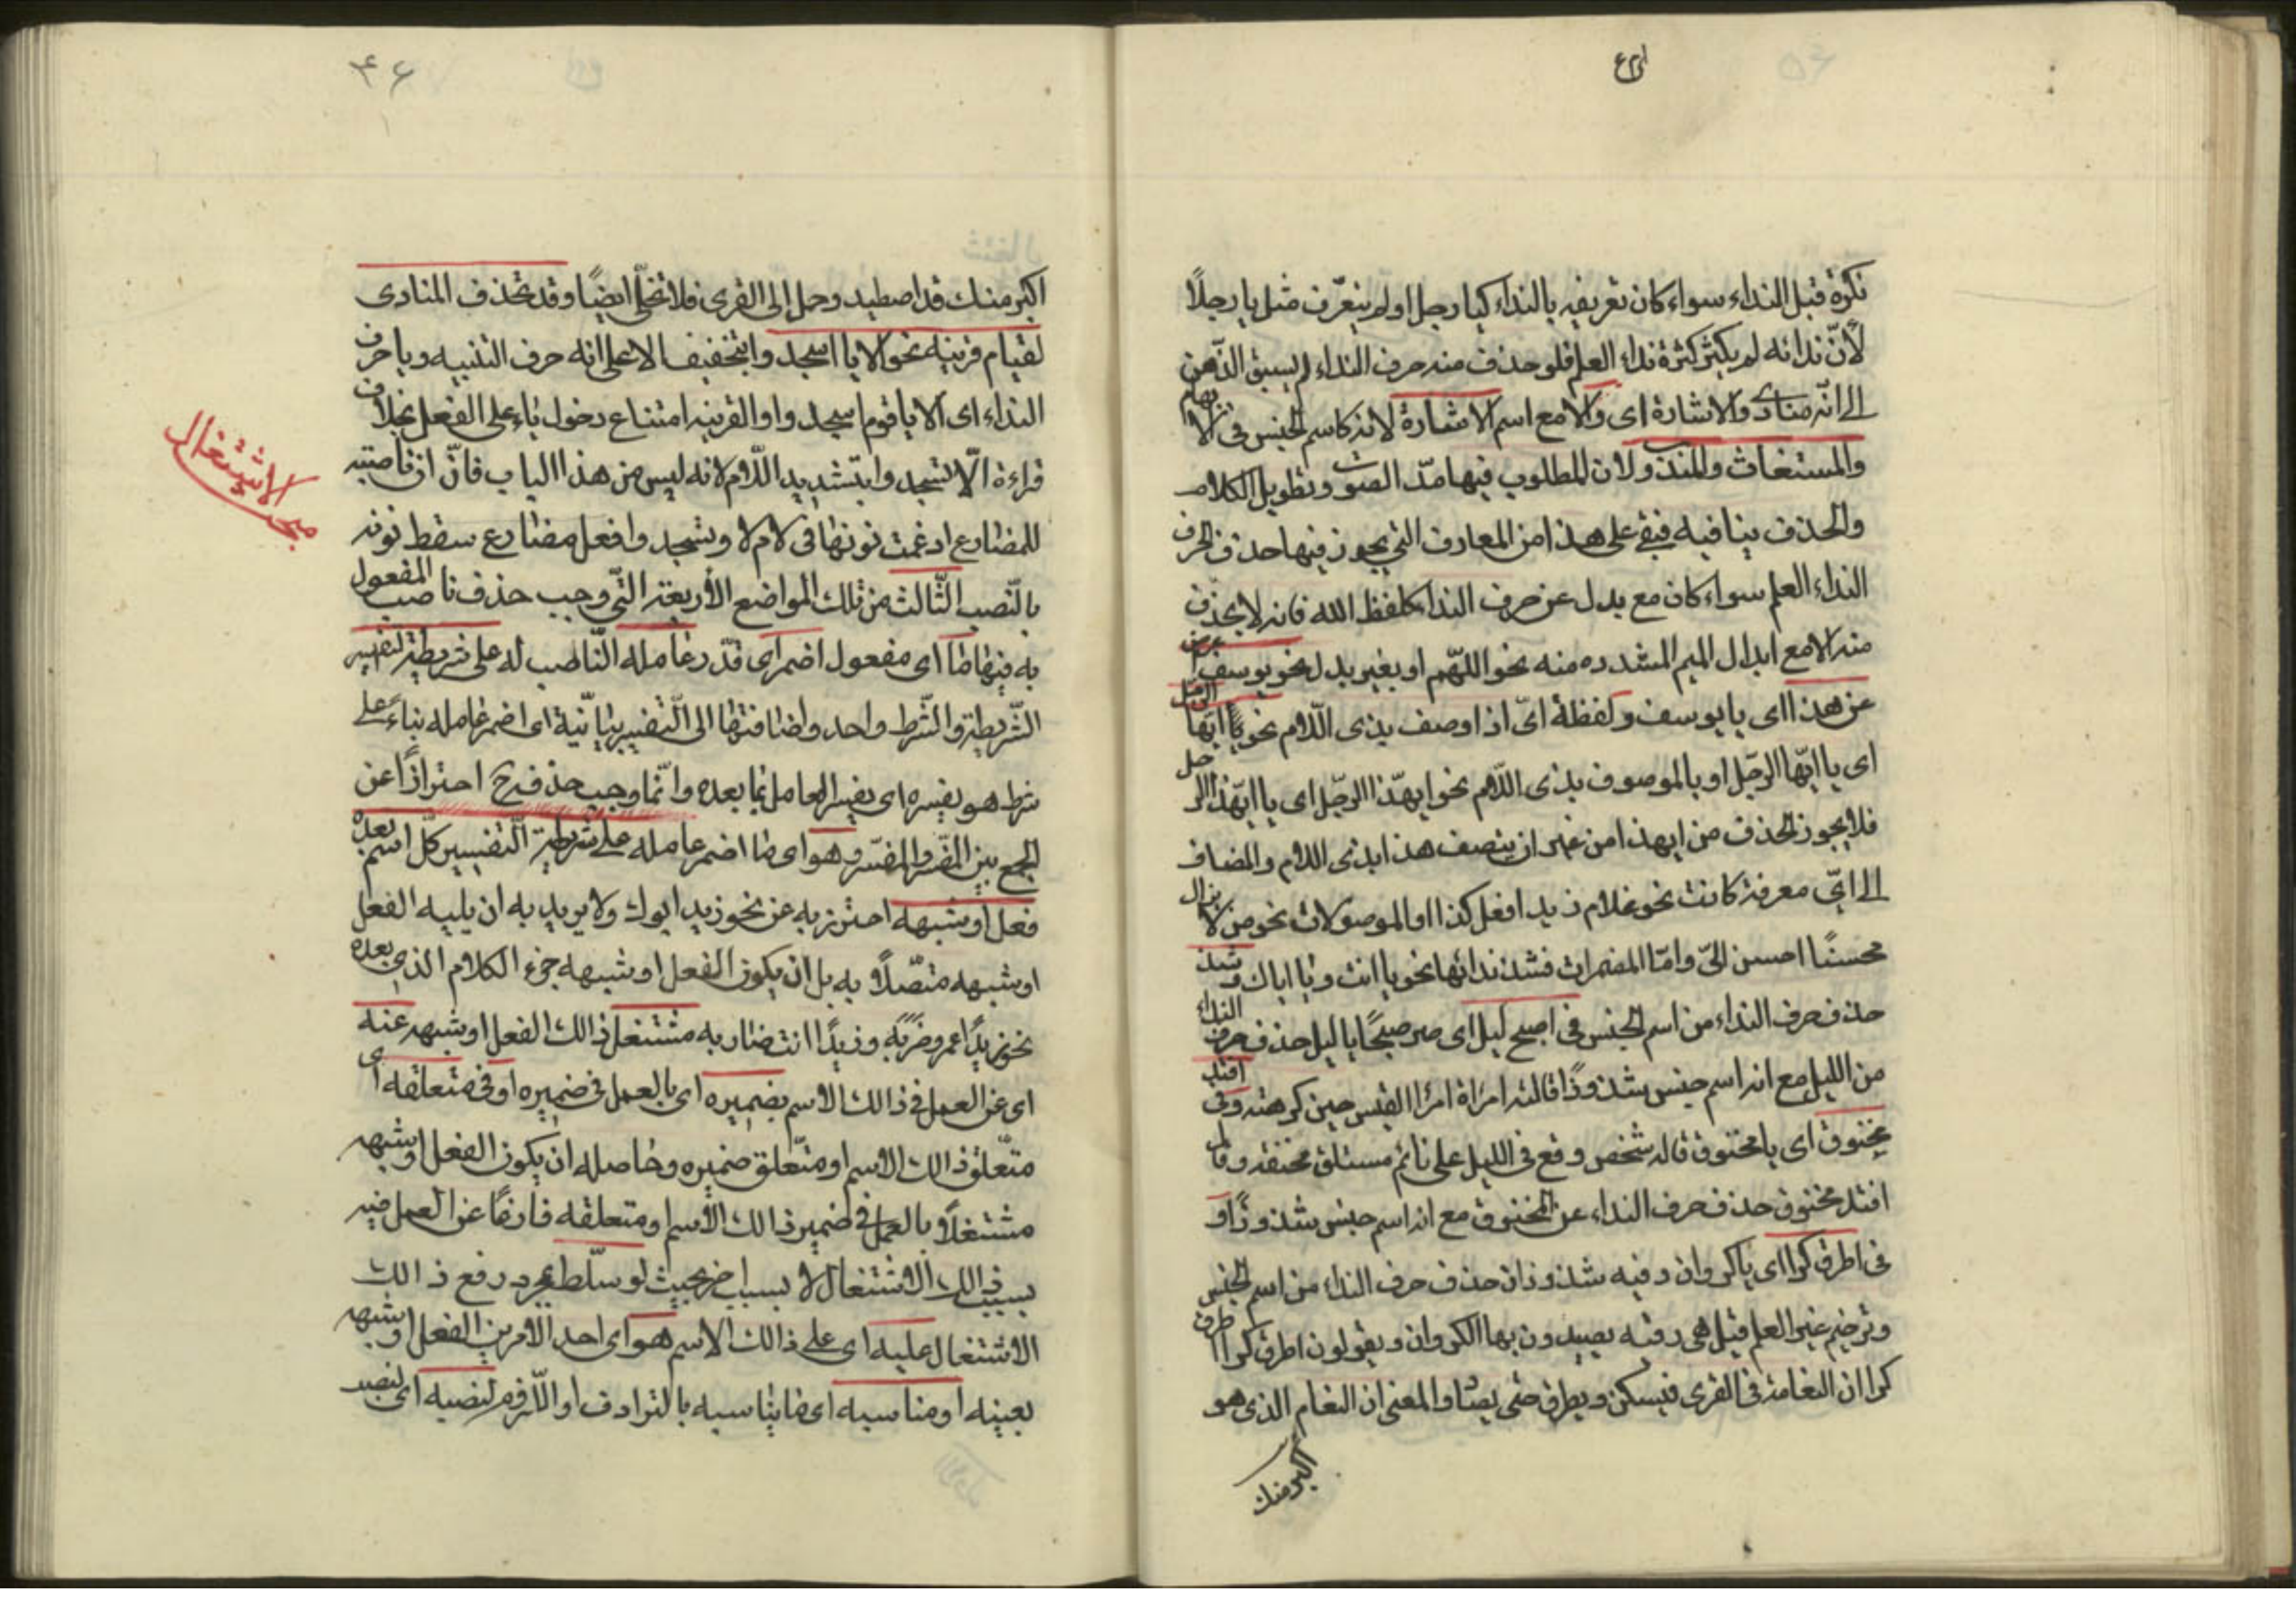 نكرة قبل النداء سواء كان تعريفه بالنداء كيا رجل او لم يتعرّف مثل يا رجلاً
لانّ ندائه لم يكثر كثرة نداء العلم فلو حذف منه حرف النداء لم يسبق الذّهن
الى انّه منادى والاشارة اى والا مع اسم الاشارة لانه كاسم الجنس فى الابهام
والمستغاث والمندوب ولان المطلوب فيها مدّ الصوت وتطويل الكلام
والحذف ينافيه فبقى على هذا من المعارف التى يجوز فيها حذف الحرف
النداء العلم سواء كان مع بدل عن حرف النداء كلفظ الله فانه لا يحذف
منه الا مع ابدال الميم المشدده منه نحو اللهّم او بغير بدل نحو يوسف اعرض
عن هذا اى يا يوسف ولفظة اىّ اذا وصف بذى اللّام نحو ايّها الرجل
اى يا ايّها الرجّل او بالموصوف بذى اللّام نحو ايهّذا الرجّل اى يا ايهّذا الرجل
فلا يجوز الحذف من ايهذا من غير ان يتصف هذا بذى اللام والمضاف
الى اىّ معرفة كانت نحو غلام زيد افعل كذا والموصولات نحو من لا يزال
محسنًا احسن الىّ وامّا المضمرات فشذ ندائها نحو يا انت ويا اياك وشذ
حذف حرف النداء من اسم الجنس فى اصبح ليل اى صر صبحًا يا ليل حذف حرف النداء
من الليل مع انه اسم جنس شذوذًا قالته امراة امرا القيس حين كرهته وفى افتد
مخنوق اى يا مخنوق قاله شخص وقع فى الليل على نائم مستلق فخنقه وقال
افتد مخنوق حذف حرف النداء عن المخنوق مع انه اسم جنس شذوذًا و
فى اطرق كرا اى يا كروان وفيه شذوذان حذف حرف النداء من اسم الجنس
وترخيم غير العلم قيل هى رقية يصيدون بها الكروان ويقولون اطرق كرا اطرق
كرا ان النعامة فى القرى فيسكن ويطرق حتى يصاد والمعنى ان النعام الذى هو
اكبر منك
٤٦
اكبر منك قد اصطيد وحمل الى القرى فلا تخلّى ايضًا وقد تحذف المنادى
لقيام قرينه نحو الا يا اسجدوا بتخفيف الا على انه حرف التنبيه ويا حرف
النداء اى الا يا قوم اسجدوا والقرينه امتناع دخول ياء على الفعل بخلاف
قراءة الّا تسجدوا بتشديد اللّام لانه ليس من هذا الباب فانّ ان ناصبته
للمضارع ادغمت نونها فى لام لا وتسجدوا فعل مضارع سقط نونه
بالنّصب الثّالث من تلك المواضع الأربعة التّى وجب حذف ناصب المفعول
به فيها ما اى مفعول اضمر اى قدّر عامله النّاصب له على شريطة التفسير
الشّريطة والشّرط واحد واضافتها الى التّفسير بيانيّة اى اضمر عامله بناءً على
شرط هو يفسره اى يفسر العامل بما بعده وانّما وجب حذفه ح احترازًا عن
الجمع بين المفسّر والمفسّر وهو اى ما اضمر عامله على شريطة التّفسير كلّ اسم بعده
فعل او شبهه احترز به عن نحو زيد ابوك ولا يريد به ان يليه الفعل
او شبهه متّصلاً به بل ان يكون الفعل او شبهه جزء الكلام الذى بعده
نحو زيدًا عمرو ضربه وزيدًا انت ضاربه مشتغل ذالك الفعل او شبهه عنه
اى عن العمل فى ذالك الاسم بضميره اى بالعمل فى ضميره او فى متعلقه اى
متعّلق ذالك الاسم او متعّلق ضميره وحاصله ان يكون الفعل او شبهه
مشتغلاً بالعمل فى ضمير ذالك الأسم او متعلقه فارغًا عن العمل فيه
بسبب ذالك الاشتغال لا بسبب اخر بحيث لو سلّط بمجرد رفع ذالك
الاشتغال عليه اى على ذالك الاسم هو اى احد الامرين الفعل او شبهه
بعينه او مناسبه اى ما يناسبه بالترادف او اللّزوم لنصبه اى لنصب
مبحث الاشتغال